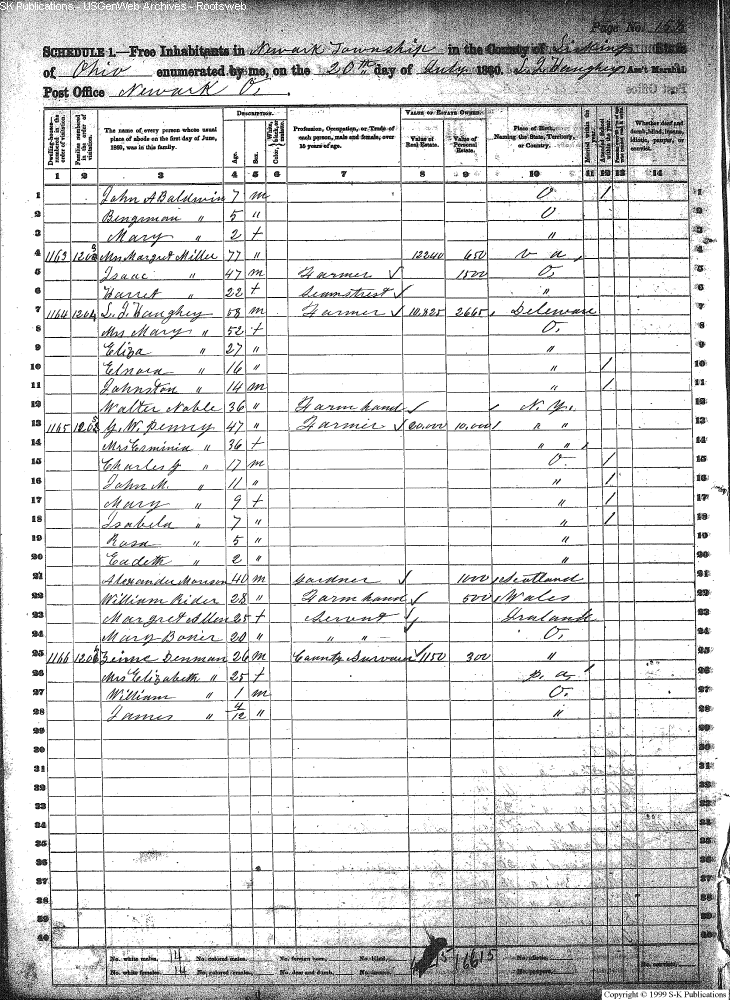 SK Publications - USGenWeb Archives - Rootsweb
Page No. 158
SCHEDULE 1.—Free Inhabitants in Newark Township in the County of Licking State
of Ohio enumerated by me, on the 20th day of July 1860. L. J. Haughey Ass't Marshal.
Post Office Newark O.
Dwelling-houses numbered in the order of visitation. Families numbered in the order of visitation. The name of every person whose usual place of abode on the first day of June, 1860, was in this family. DESCRIPTION. Age. Sex. Color, White, black, or mulatto. Profession, Occupation, or Trade of each person, male and female, over 15 years of age. VALUE OF ESTATE OWNED. Value of Real Estate. Value of Personal Estate. Place of Birth, Naming the State, Territory, or Country. Married within the year. Attended School within the year. Whether deaf and dumb, blind, insane, idiotic, pauper, or convict.
1 2 3 4 5 6 7 8 9 10 11 12 13 14
1 John A Baldwin 7 m O / 1
2 Bingman " 5 " O 2
3 Mary " 2 f " 3
4 1163 1203 Mrs Margret Miller 77 " 12240 650 Va 4
5 Isaac " 47 m Farmer 1500 O. 5
6 Harret " 22 f Seamstrest " 6
7 1164 1204 L. J. Haughey 58 m Farmer 10,825 2665 Deleware 7
8 Mrs Mary " 52 f O. 8
9 Eliza " 27 " " 9
10 Elnora " 16 " " / 10
11 Johnston " 14 m " / 11
12 Walter Noble 36 " Farm hand N.Y. 12
13 1165 1205 G. W. Penny 47 " Farmer 20,000 10,000 " " 13
14 Mrs Erminia " 36 f " " 14
15 Charles G " 17 m O. / 15
16 John M. " 11 " " / 16
17 Mary " 9 f " / 17
18 Isabela " 7 " " / 18
19 Rosa " 5 " " 19
20 Eadeth " 2 " " 20
21 Alexander Monison 40 m Gardner 1000 Scotland 21
22 William Rider 28 " Farm hand 500 Wales 22
23 Margret Allen 25 f Servent Iraland 23
24 Mary Bonir 20 " " " O. 24
25 1166 1206 Denman 26 m County Survaer 1150 300 " 25
26 Mrs Elizabeth " 25 f Pa 26
27 William " 1 m O. 27
28 James " 4/12 " " 28
29 29
30 30
31 31
32 32
33 33
34 34
35 35
36 36
37 37
38 38
39 39
40 40
No. white males, 14 No. colored males, No. foreign born, No. blind, 16615 No. idiotic,
No. white females, 14 No. colored females, No. deaf and dumb, No. insane, No. paupers, No. convicts,
Copyright © 1999 S-K Publications